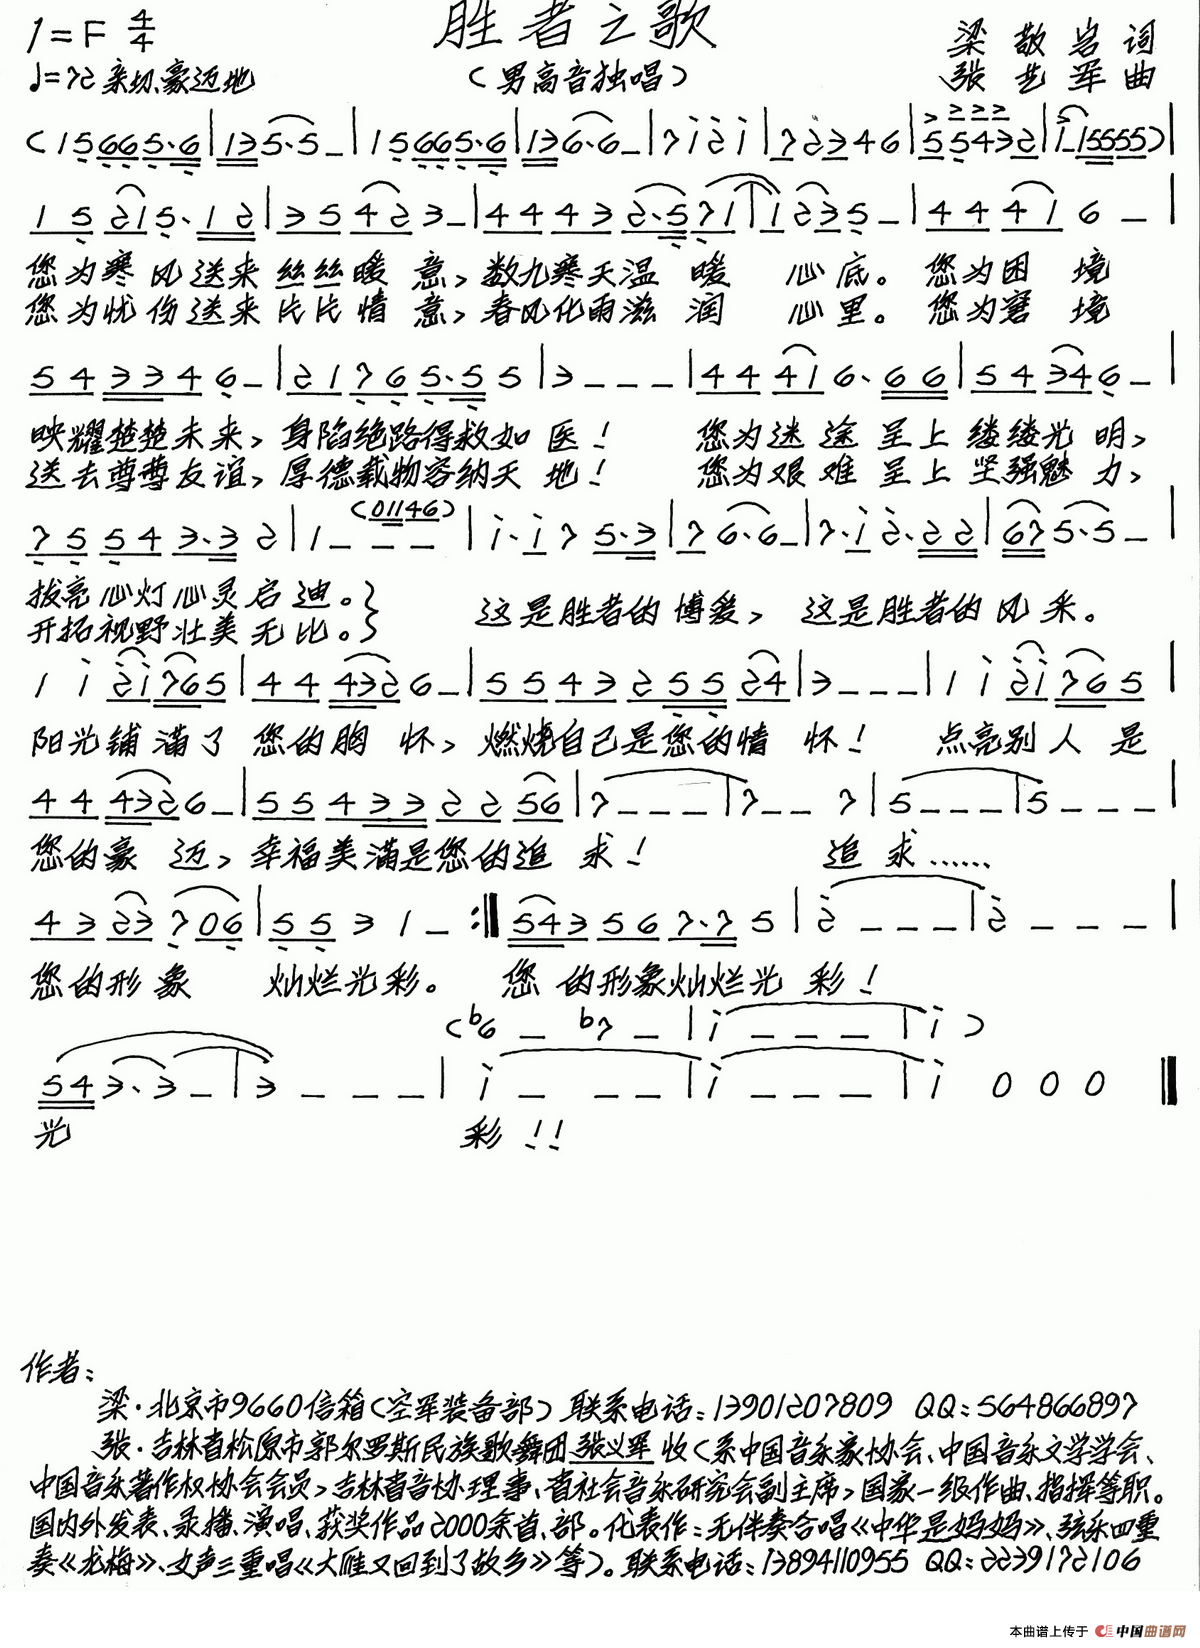 胜者之歌
1=F 4/4
♩=72 亲切、豪迈地
(男高音独唱)
梁敬岩 词
张艺军 曲
(1 5 6 6 5·6 | 1 3 5·5 – | 1 5 6 6 5·6 | 1 3 6·6 – | 7 i 2 i | 7 2 3 4 6 | 5 5 4 3 2 | 1 1 5 5 5 5) |
1 5 2 1 5·1 2 | 3 5 4 2 3 – | 4 4 4 3 2·5 7 1 | 1 2 3 5 – | 4 4 4 1 6 – |
您为寒风送来丝丝暖意,数九寒天温暖心底。您为困境
您为忧伤送来片片情意,春风化雨滋润心里。您为窘境
5 4 3 3 4 6 – | 2 1 7 6 5·5 5 | 3 – – – | 4 4 4 1 6·6 6 | 5 4 3 4 6 – |
映耀楚楚未来,身陷绝路得救如医! 您为迷途呈上缕缕光明,
送去尊尊友谊,厚德载物容纳天地! 您为艰难呈上坚强魅力,
(0 1 1 4 6)
7 5 5 4 3·3 2 | 1 – – – | i·i 7 5·3 | 7 6·6 – | 7·i 2·2 2 | 6 7 5·5 – |
拔亮心灯心灵启迪。 这是胜者的博爱,这是胜者的风采。
开拓视野壮美无比。
1 i 2 i 7 6 5 | 4 4 4 3 2 6 – | 5 5 4 3 2 5 5 2 4 | 3 – – – | 1 i 2 i 7 6 5 |
阳光铺满了您的胸怀,燃烧自己是您的情怀! 点亮别人是
4 4 4 3 2 6 – | 5 5 4 3 3 2 2 5 6 | 7 – – – | 7 – – 7 | 5 – – – | 5 – – – |
您的豪迈,幸福美满是您的追求! 追求……
4 3 2 3 7 0 6 | 5 5 3 1 – :‖ 5 4 3 5 6 7·7 5 | 2 – – – | 2 – – – |
您的形象 灿烂光彩。 您的形象灿烂光彩!
(b6 – b7 – | i – – – | i )
5 4 3·3 – | 3 – – – | i – – – | i – – – | i 0 0 0 ‖
光 彩!!
作者:
梁·北京市9660信箱(空军装备部) 联系电话:13901207809 QQ:564866897
张·吉林省松原市郭尔罗斯民族歌舞团张义军 收(系中国音乐家协会、中国音乐文学学会、
中国音乐著作权协会会员,吉林省音协理事、省社会音乐研究会副主席,国家一级作曲、指挥等职。
国内外发表、录播、演唱、获奖作品2000余首、部。代表作:无伴奏合唱《中华是妈妈》、弦乐四重
奏《龙梅》、女声三重唱《大雁又回到了故乡》等)。联系电话:13894110955 QQ:2239172106
本曲谱上传于 中国曲谱网